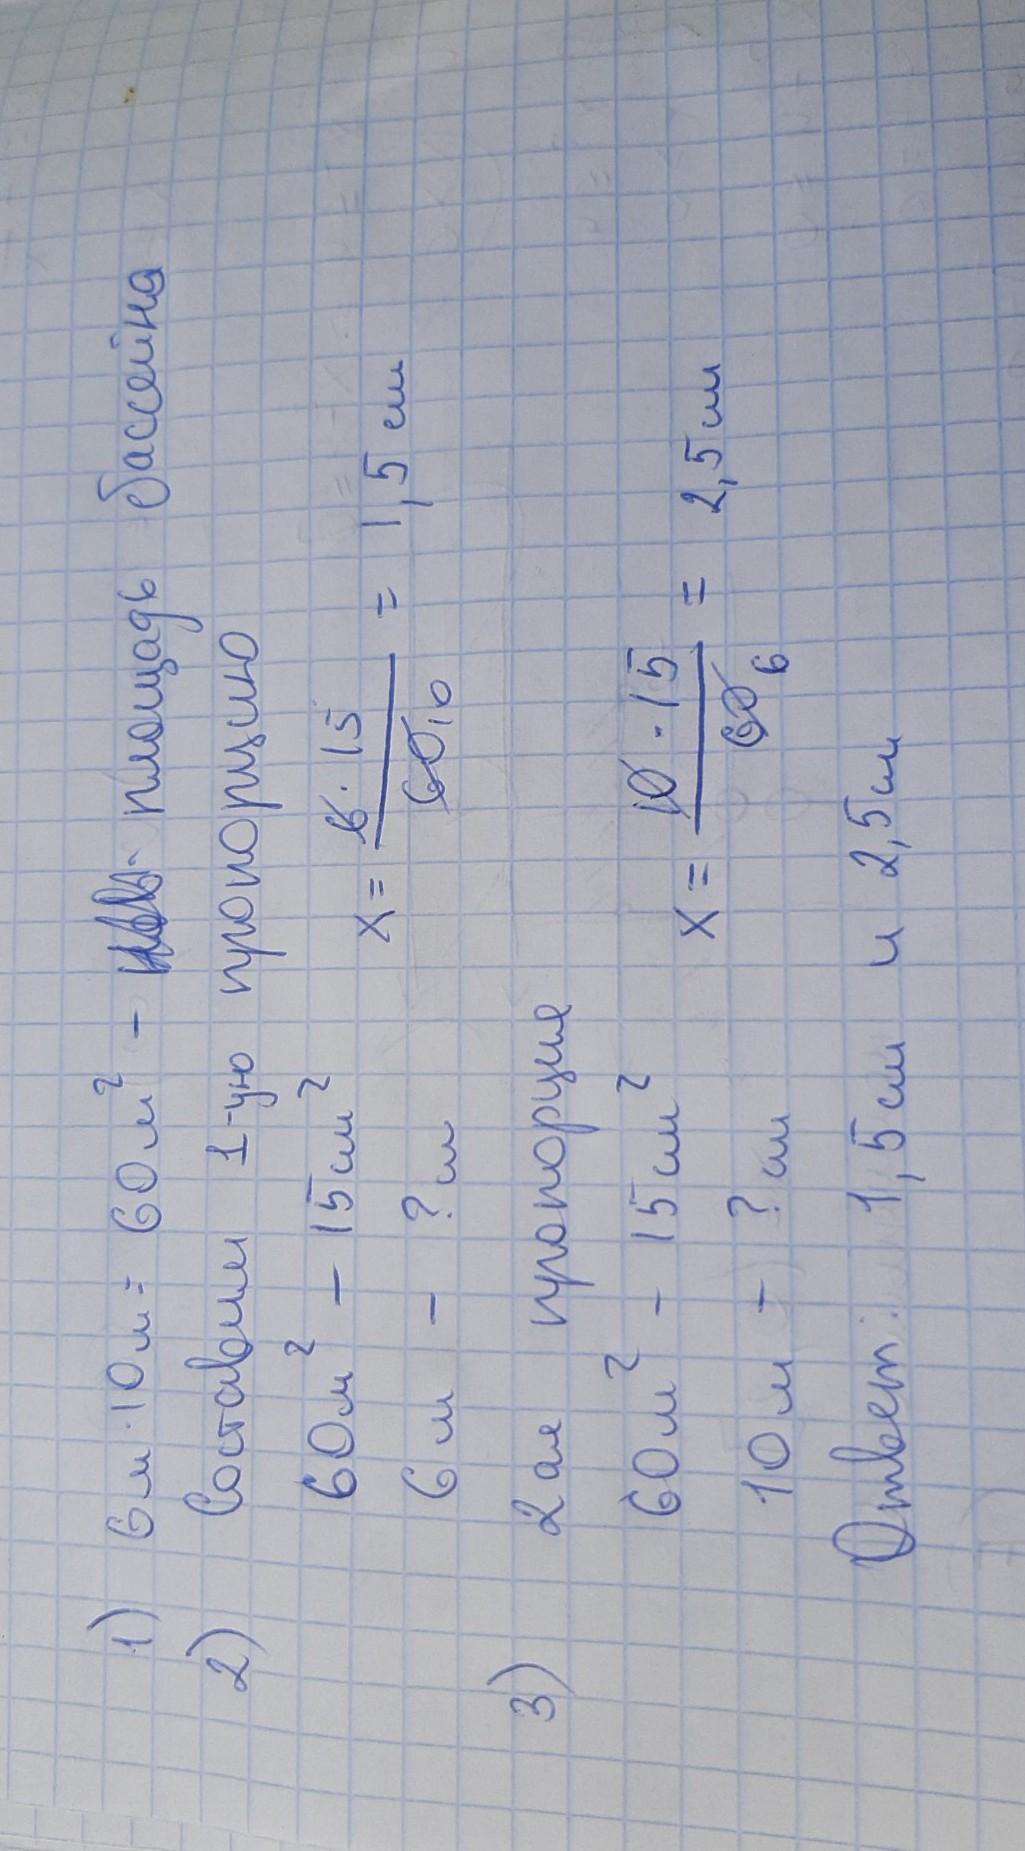 1) 6м·10м= 60м² - площадь бассейна
2) Составим 1-ую пропорцию
60м² - 15см² x= 6·15 / 60 10 = 1,5 см
6м - ?см
3) 2ая пропорция
60м² - 15см² x= 10·15 / 60 6 = 2,5см
10м - ?см
Ответ: 1,5см и 2,5см